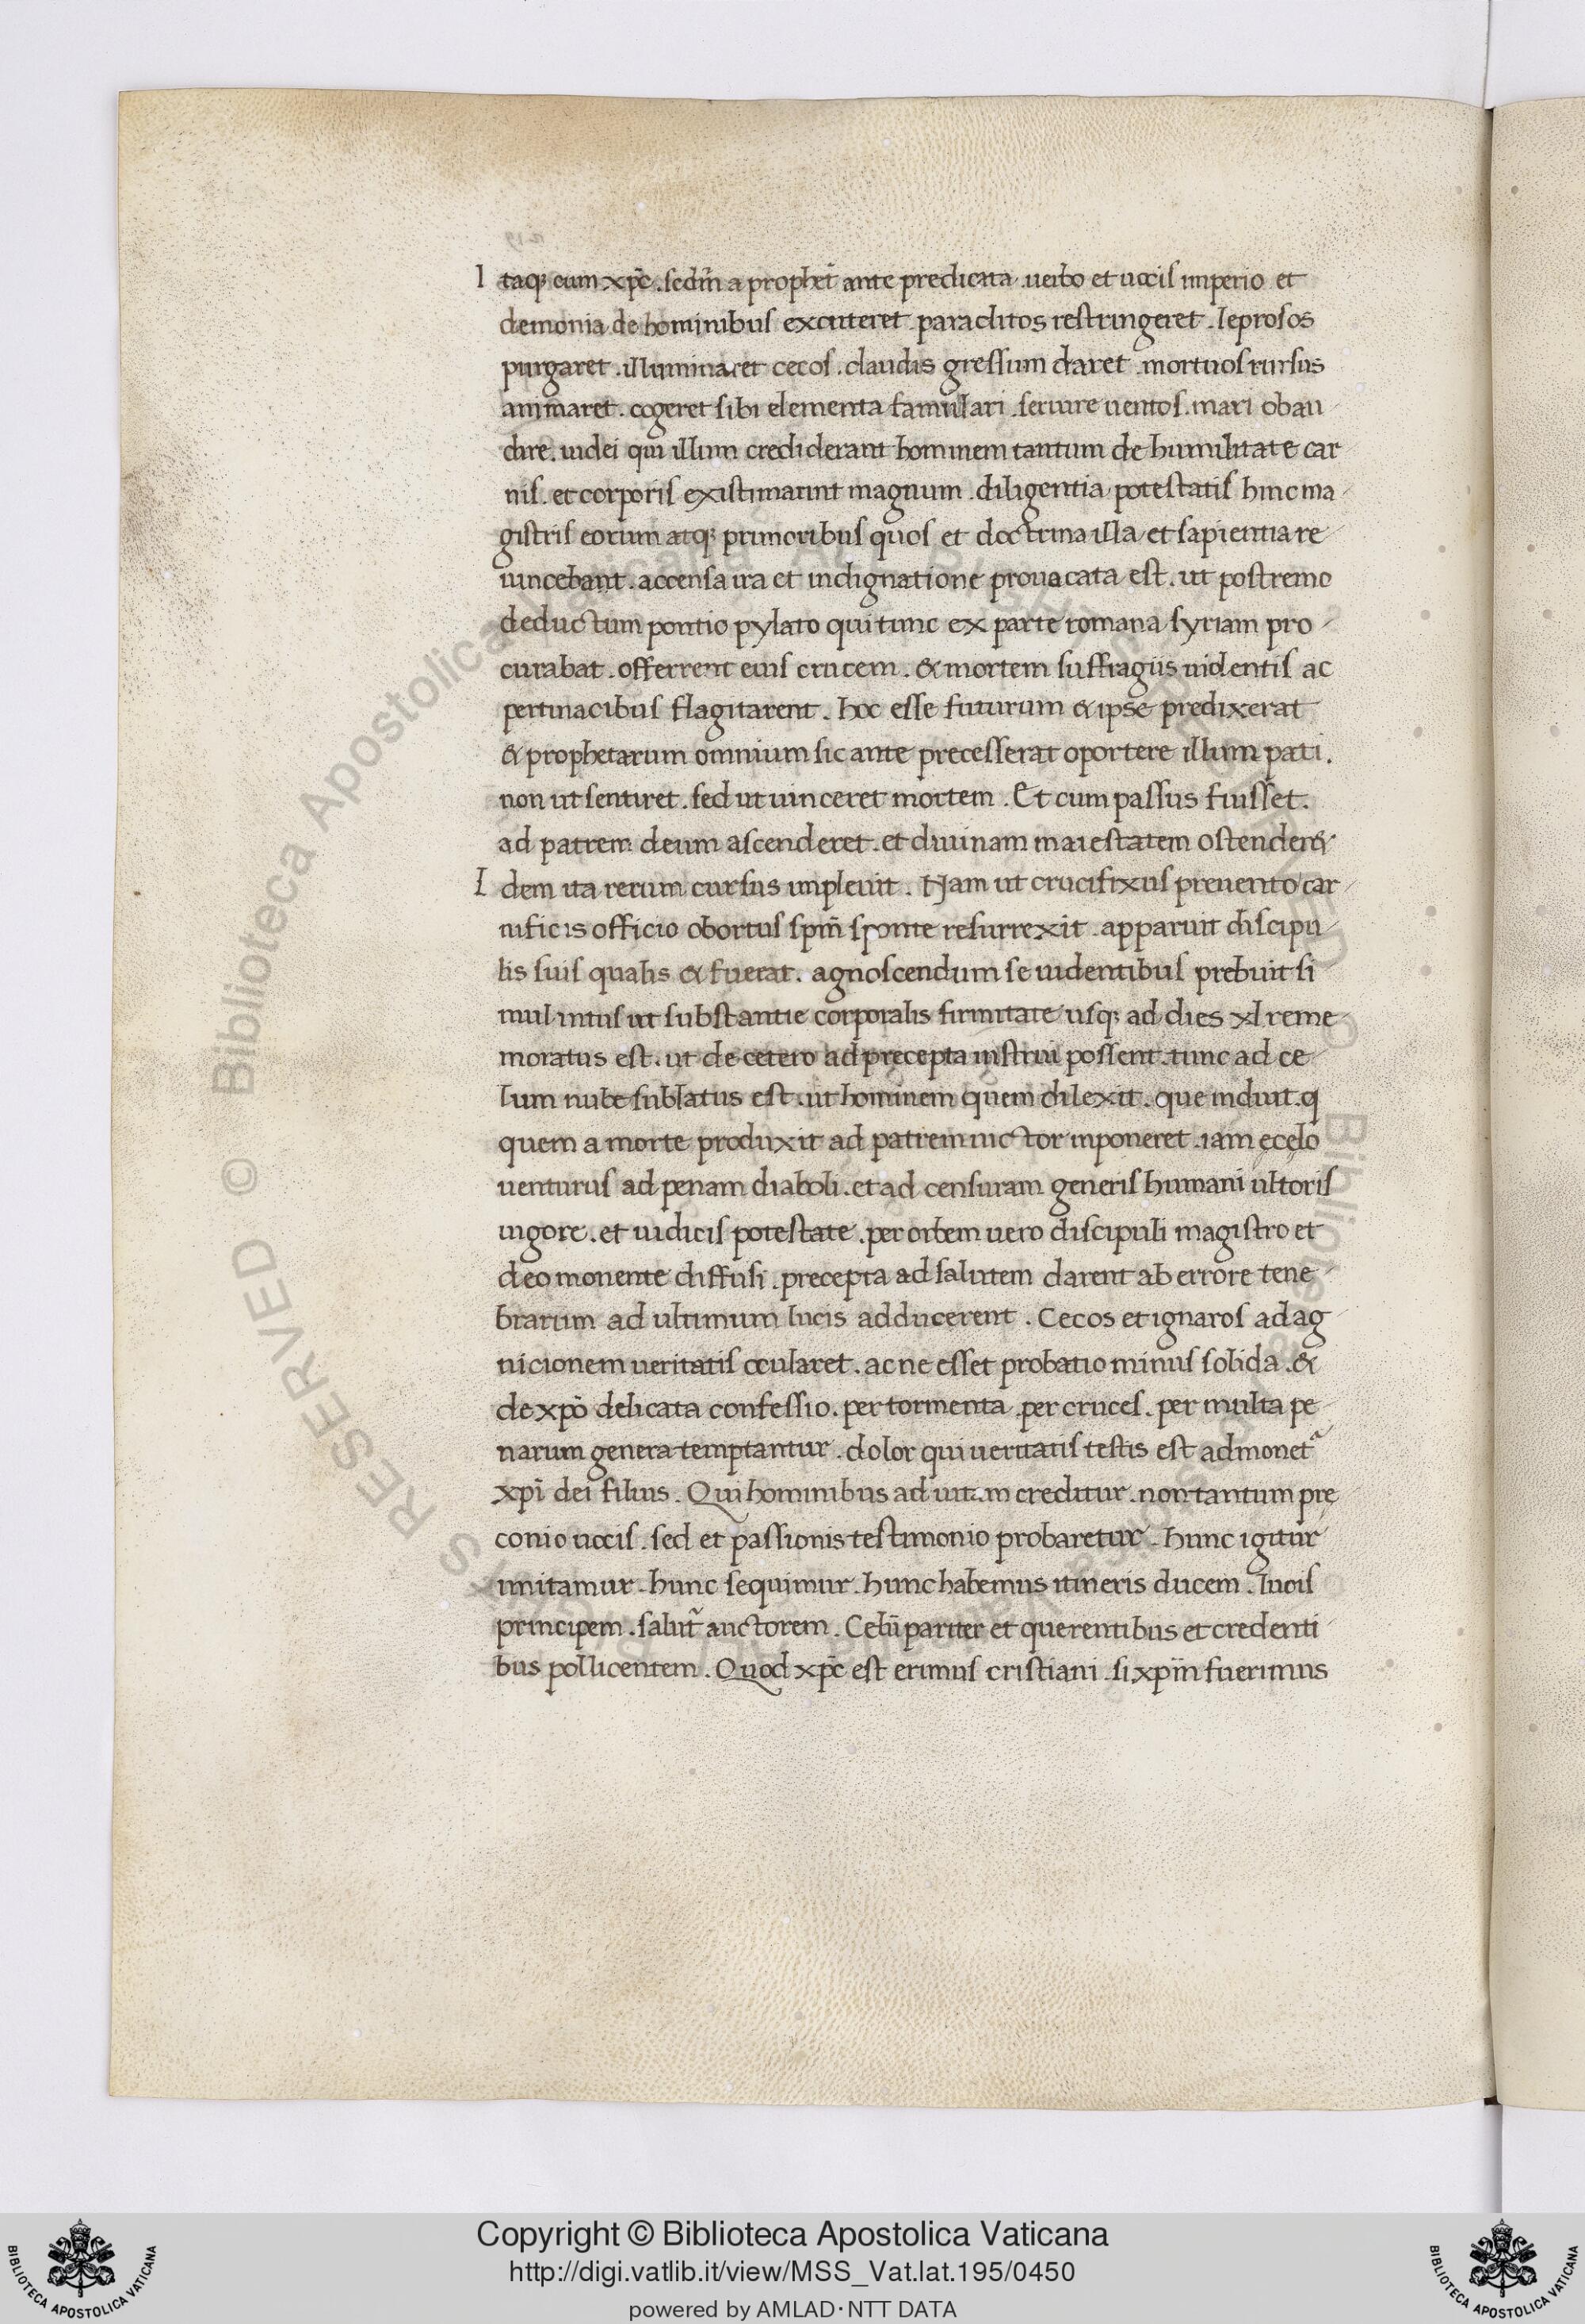 Itaq; cum xp̄c . sedm̄ a prophet̄ ante predicata . uerbo et uocis imperio et
demonia de hominibus excuteret . paraclitos restringeret . leprosos
purgaret . illuminaret cecos . claudis gressum daret . mortuos rursus
animaret . cogeret sibi elementa famulari . seruire uentos . mari obau
dire . iudei qui illum crediderant hominem tantum de humilitate car
nis . et corporis existimarint magnum . diligentia potestatis hinc ma
gistris eorum atq; primoribus quos et doctrina illa et sapientia re
uincebant . accensa ira et indignatione prouocata est . ut postremo
deductum pontio pylato qui tunc ex parte romana syriam pro
curabat . offerrent eius crucem . & mortem suffragiis uidentis ac
pertinacibus flagitarent . hoc esse futurum & ipse predixerat
& prophetarum omnium sic ante precesserat oportere illum pati .
non ut sentiret . sed ut uinceret mortem . Et cum passus fuisset .
ad patrem deum ascenderet . et diuinam maiestatem ostender&
Idem ita rerum cursus impleuit . Nam ut crucifixus preuento car
nificis officio obortus spm̄ sponte resurrexit . apparuit discipu
lis suis qualis & fuerat . agnoscendum se uidentibus prebuit si
mul intus ut substantie corporalis firmitate usq; ad dies xl reme
moratus est . ut de cetero ad precepta instrui possent . tunc ad ce
lum nube sublatus est . ut hominem quem dilexit . que induit . q
quem a morte produxit ad patrem uictor inponeret . iam ecelo
uenturus ad penam diaboli . et ad censuram generis humani ultoris
uigore . et iudicis potestate . per orbem uero discipuli magistro et
deo monente diffusi . precepta ad salutem darent ab errore tene
brarum ad ultimum lucis adducerent . Cecos et ignaros ad ag
nicionem ueritatis ocularet . ac ne esset probatio minus solida . &
de xpō delicata confessio . per tormenta . per cruces . per multa pe
narum genera temptantur . dolor qui ueritatis testis est admonet
xpī dei filius . Qui hominibus ad uitam creditur . non tantum pre
conio uocis . sed et passionis testimonio probaretur . hunc igitur
imitamur . hunc sequimur . hunc habemus itineris ducem . lucis
principem . salut̄ auctorem . Celū pariter et querentibus et credenti
bus pollicentem . Quod xp̄c est erimus cristiani . si xpm̄ fuerimus
© Biblioteca Apostolica Vaticana
RIGHTS RESERVED
Copyright © Biblioteca Apostolica Vaticana
http://digi.vatlib.it/view/MSS_Vat.lat.195/0450
powered by AMLAD·NTT DATA
BIBLIOTECA APOSTOLICA VATICANA
BIBLIOTECA APOSTOLICA VATICANA